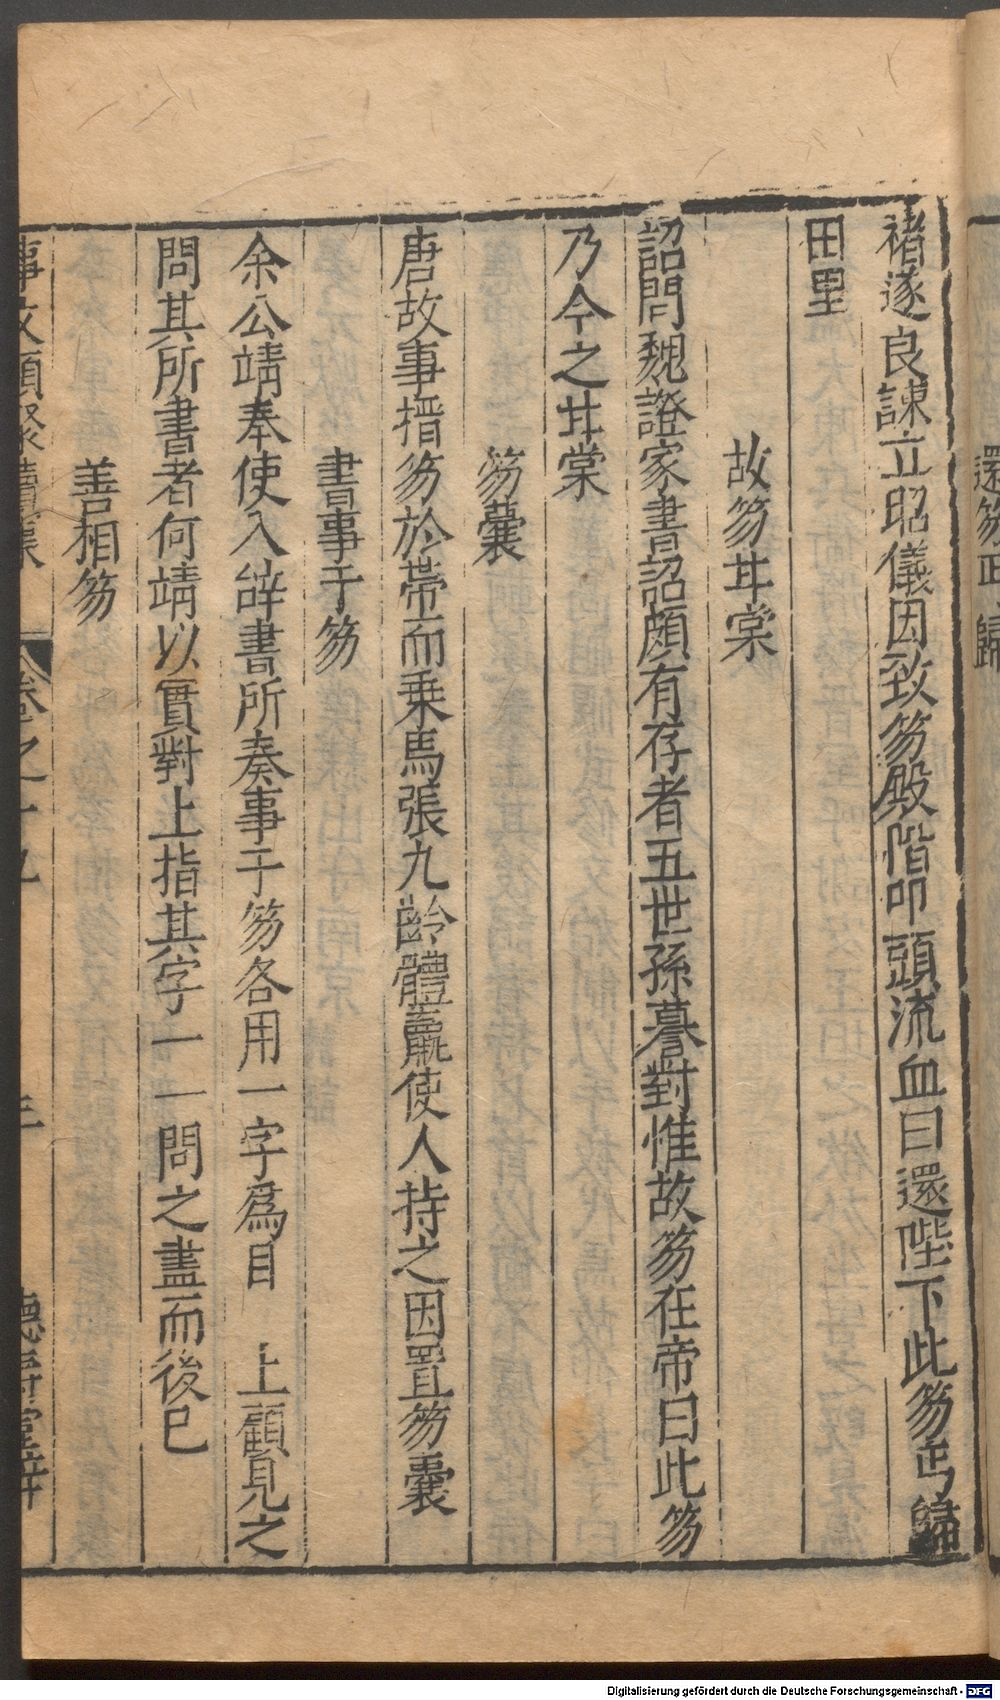 還笏丐歸
褚遂良諫立昭儀因致笏殿階叩頭流血曰還陛下此笏丐歸
田里
故笏甘棠
詔問魏謩家書詔頗有存者五世孫謩對惟故笏在帝曰此笏
乃今之甘棠
笏囊
唐故事搢笏於帶而乗馬張九齡體羸使人持之因置笏囊
書事于笏
余公靖奉使入辭書所奏事于笏各用一字爲目 上顧見之
問其所書者何靖以實對上指其字一一問之盡而後已
善相笏
事文類聚續集 卷之十九 三 德壽堂梓
Digitalisierung gefördert durch die Deutsche Forschungsgemeinschaft - DFG